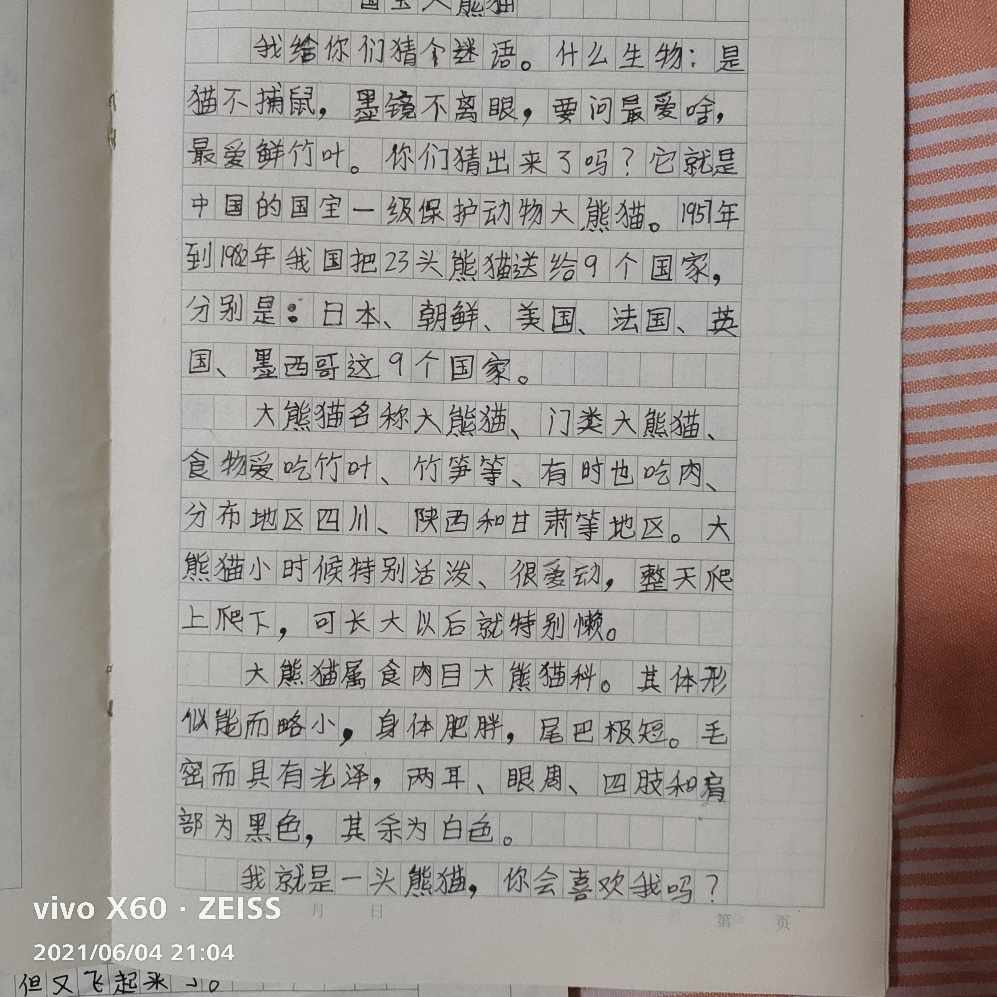 国宝大熊猫
我给你们猜个谜语。什么生物：是
猫不捕鼠，墨镜不离眼，要问最爱啥，
最爱鲜竹叶。你们猜出来了吗？它就是
中国的国宝一级保护动物大熊猫。1957年
到1982年我国把23头熊猫送给9个国家，
分别是：日本、朝鲜、美国、法国、英
国、墨西哥这9个国家。
大熊猫名称大熊猫、门类大熊猫、
食物爱吃竹叶、竹笋等、有时也吃肉、
分布地区四川、陕西和甘肃等地区。大
熊猫小时候特别活泼、很爱动，整天爬
上爬下，可长大以后就特别懒。
大熊猫属食肉目大熊猫科。其体形
似能而略小，身体肥胖，尾巴极短。毛
密而具有光泽，两耳、眼周、四肢和肩
部为黑色，其余为白色。
我就是一头熊猫，你会喜欢我吗？
月 日 第 页
vivo X60 · ZEISS
2021/06/04 21:04
但又飞起来